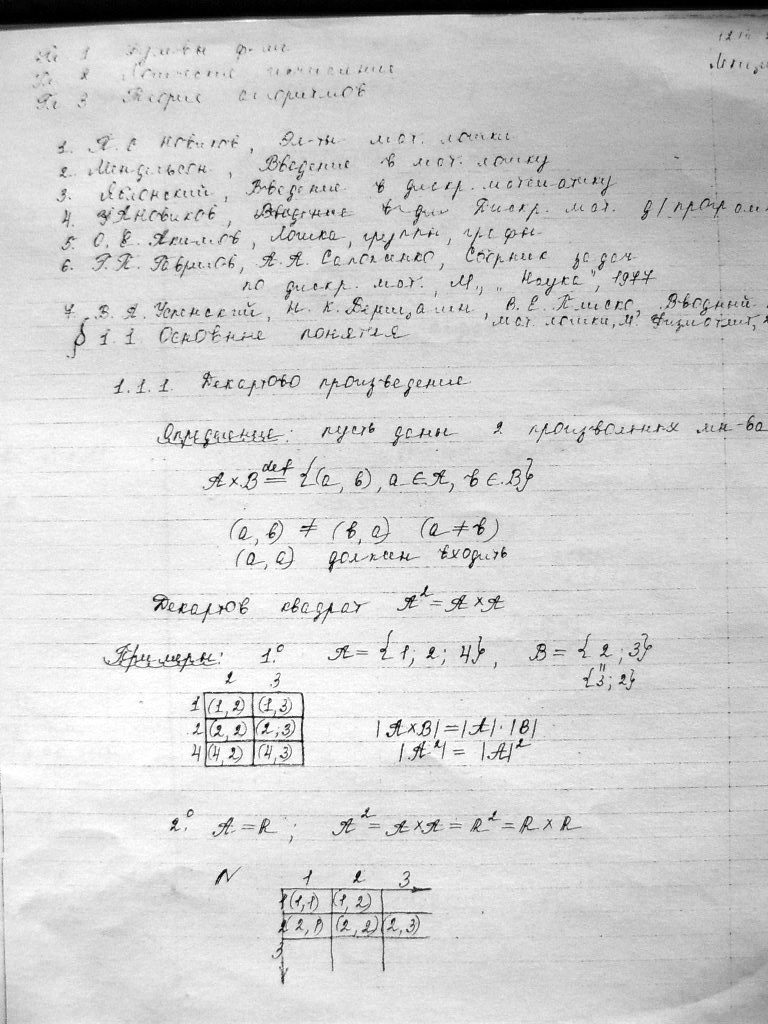 Гл 1 Булевы ф-ии
Гл 2 Логические исчисления
Гл 3 Теория алгоритмов
1. Новиков, Эл-ты мат. логики
2. Мендельсон, Введение в мат. логику
3. Яблонский, Введение в дискр. математику
4. Новиков, Дискр. мат. д/програм
5. О. Е. Акимов, Логика, группы, графы
6. Г. П. Гаврилов, А. А. Сапоженко, Сборник задач
по дискр. мат., М., "Наука", 1977
7. В. А. Успенский, Н. К. Верещагин, В. Е. Плиско, Вводный
мат. логики, М. Физматлит,
§ 1.1 Основные понятия
1.1.1 Декартово произведение
Определение: пусть даны 2 произвольных мн-ва
A×B def= {(a, b), a ∈ A, b ∈ B}
(a, b) ≠ (b, a) (a ≠ b)
(a, a) должен входить
Декартов квадрат A² = A×A
Примеры: 1.° A = {1; 2; 4}, B = {2; 3}
" {3; 2}
2 3
1 (1,2) (1,3)
2 (2,2) (2,3)
4 (4,2) (4,3)
|A×B| = |A|·|B|
|A²| = |A|²
2.° A = R; A² = A×A = R² = R×R
N 1 2 3
1 (1,1) (1,2)
2 (2,1) (2,2) (2,3)
3